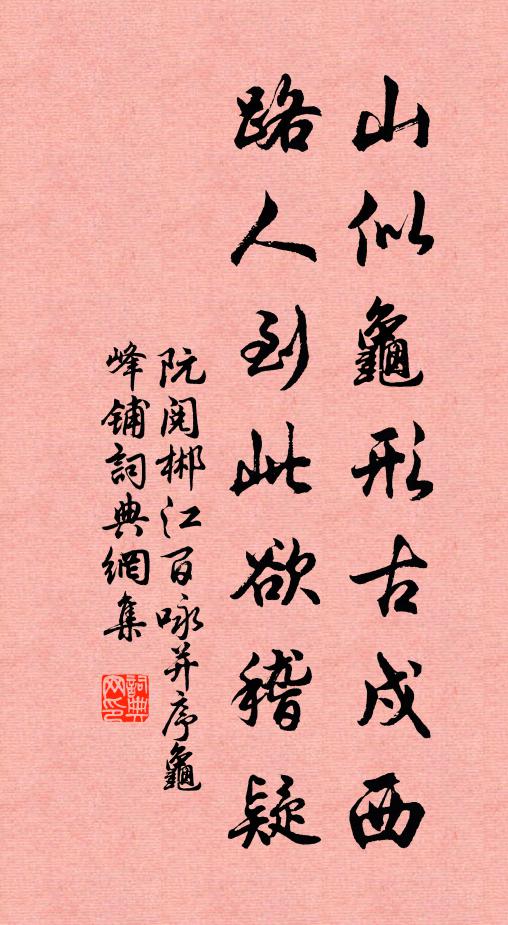 山似龜形古戍西
路人到此欲稽疑
阮閱郴江百咏并序龜
峰鋪詞典網集
詞典
网印